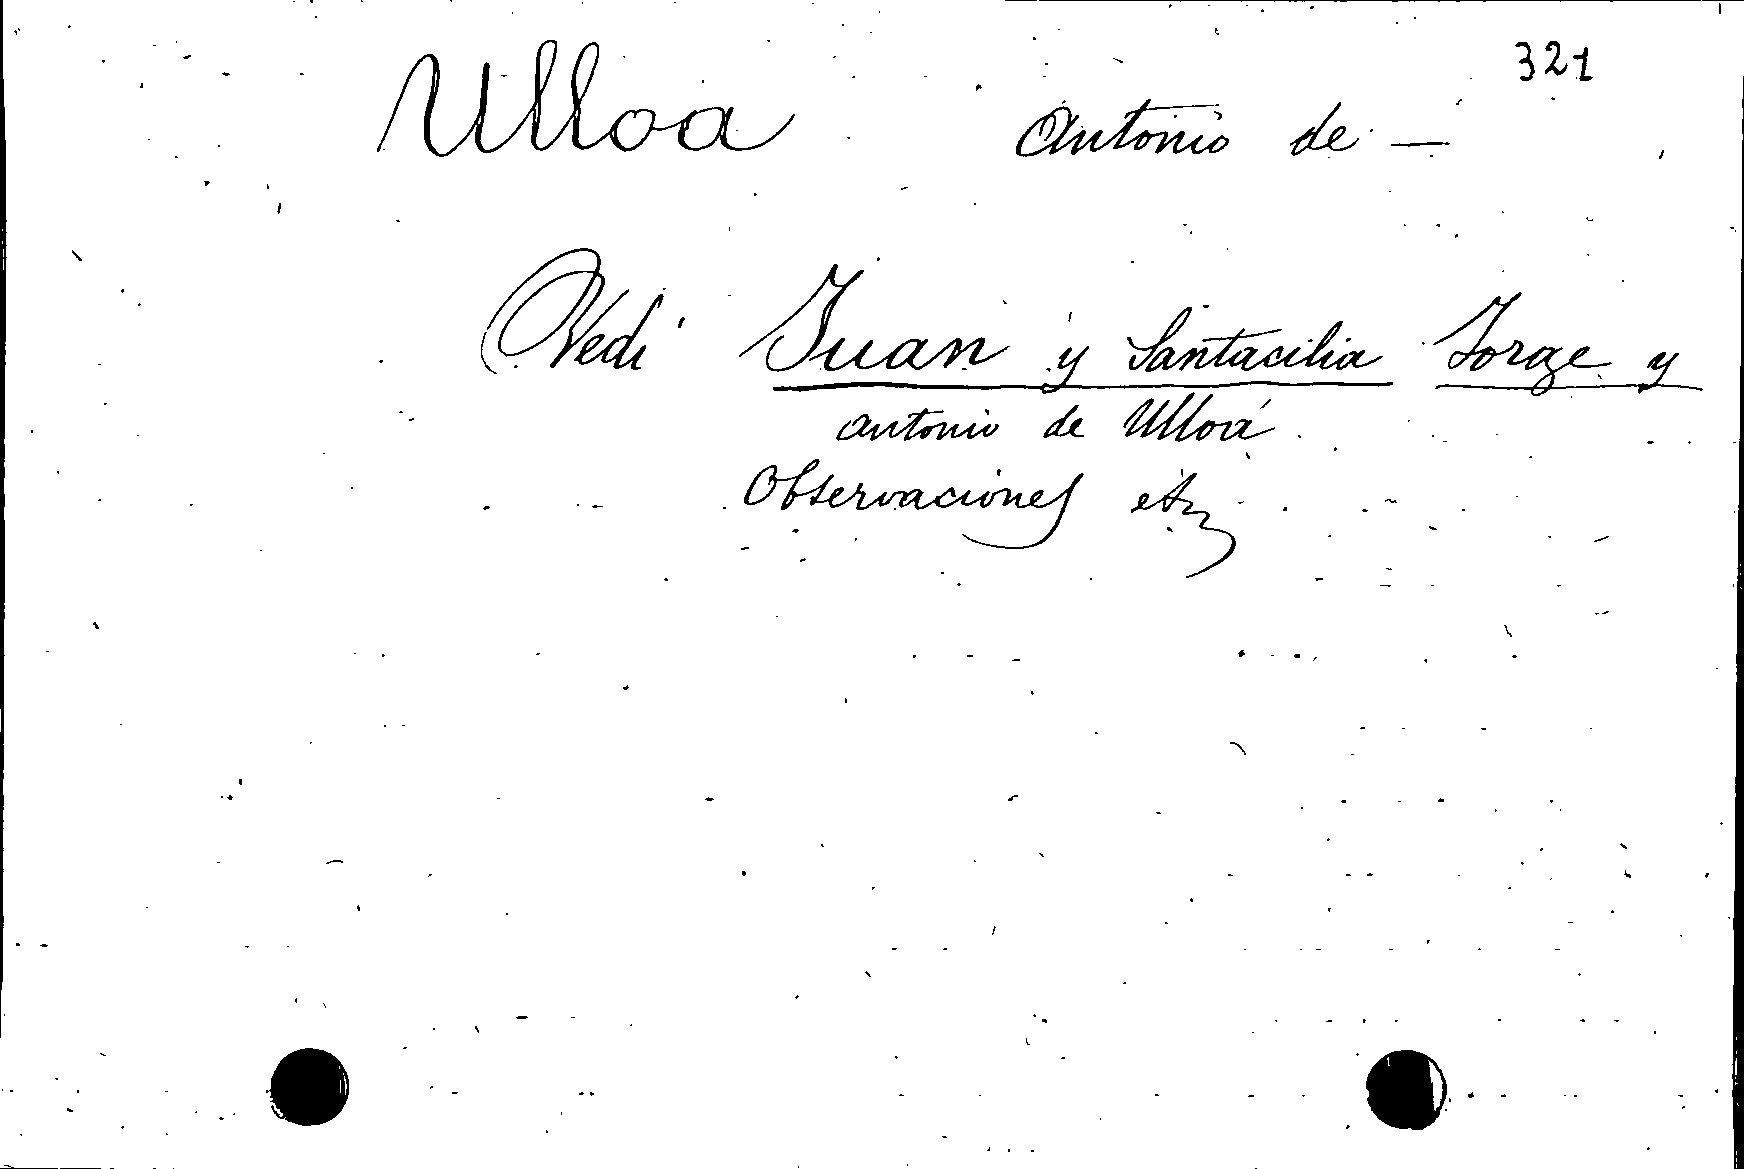 321
Ulloa Antonio de —
Vedi Juan y Santacilia Jorge y
antonio de Ulloa
Observaciones etc